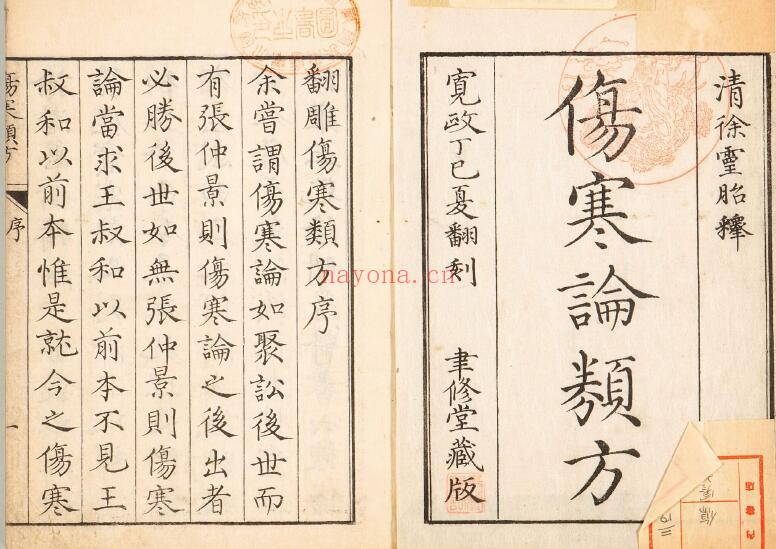 清徐靈胎釋
傷寒論類方
寬政丁巳夏翻刻 聿修堂藏版
翻雕傷寒類方序
余嘗謂傷寒論如聚訟後世而
有張仲景則傷寒論之後出者
必勝後世如無張仲景則傷寒
論當求王叔和以前本不見王
叔和以前本惟是就今之傷寒
傷寒類方 序 一
nayona.cn